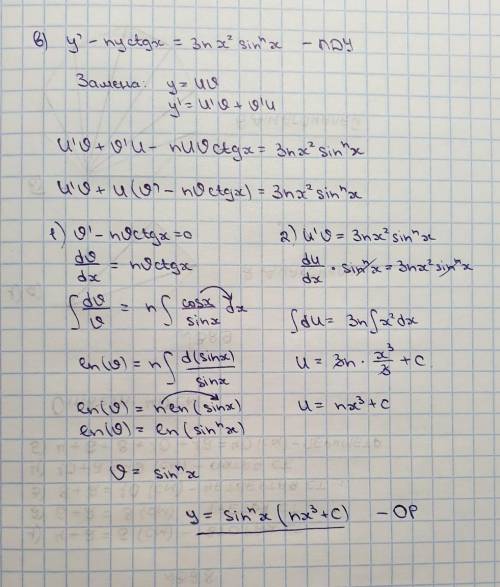 в) y' - nyctgx = 3nx² sinⁿx - ЛДУ
Замена: y = uϑ
y' = u'ϑ + ϑ'u
u'ϑ + ϑ'u - nuϑctgx = 3nx² sinⁿx
u'ϑ + u(ϑ' - nϑctgx) = 3nx² sinⁿx
1) ϑ' - nϑctgx = 0
dϑ/dx = nϑctgx
∫ dϑ/ϑ = n∫ cosx/sinx dx
ln(ϑ) = n∫ d(sinx)/sinx
ln(ϑ) = nln(sinx)
ln(ϑ) = ln(sinⁿx)
ϑ = sinⁿx
2) u'ϑ = 3nx² sinⁿx
du/dx · sinⁿx = 3nx² sinⁿx
∫du = 3n∫x²dx
u = 3n · x³/3 + C
u = nx³ + C
y = sinⁿx (nx³ + C) - ОР